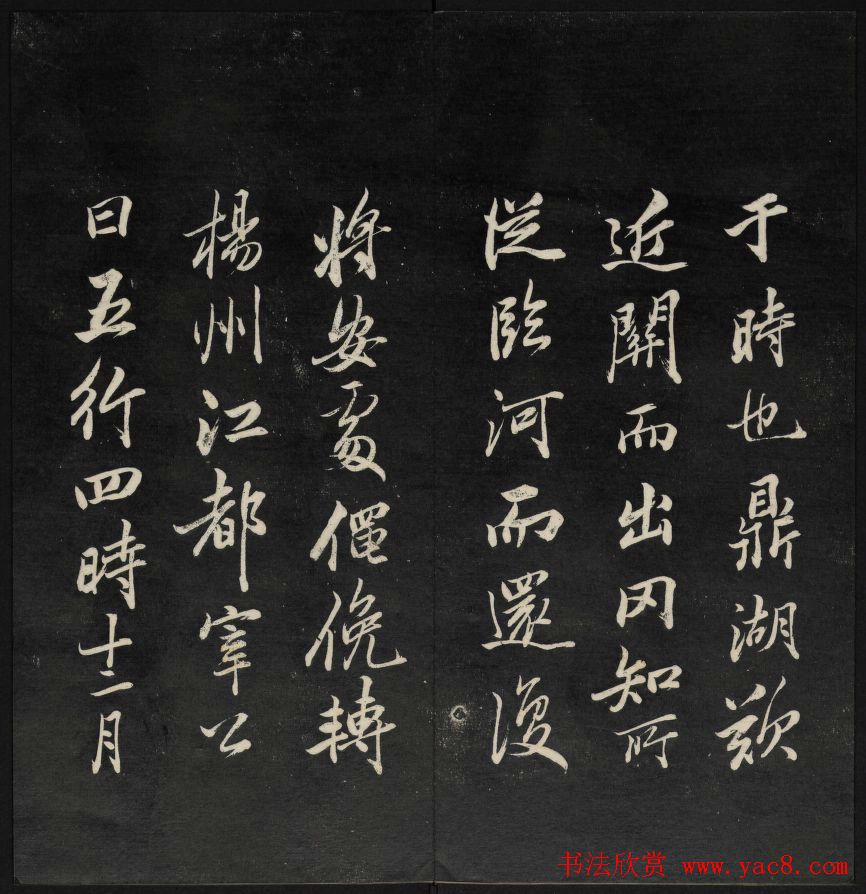 于時也鼎湖歎
近關而出罔知所
從臨河而還復
將安處僶俛轉
楊州江都宰公
曰五行四時十二月
书法欣赏 www.yac8.com